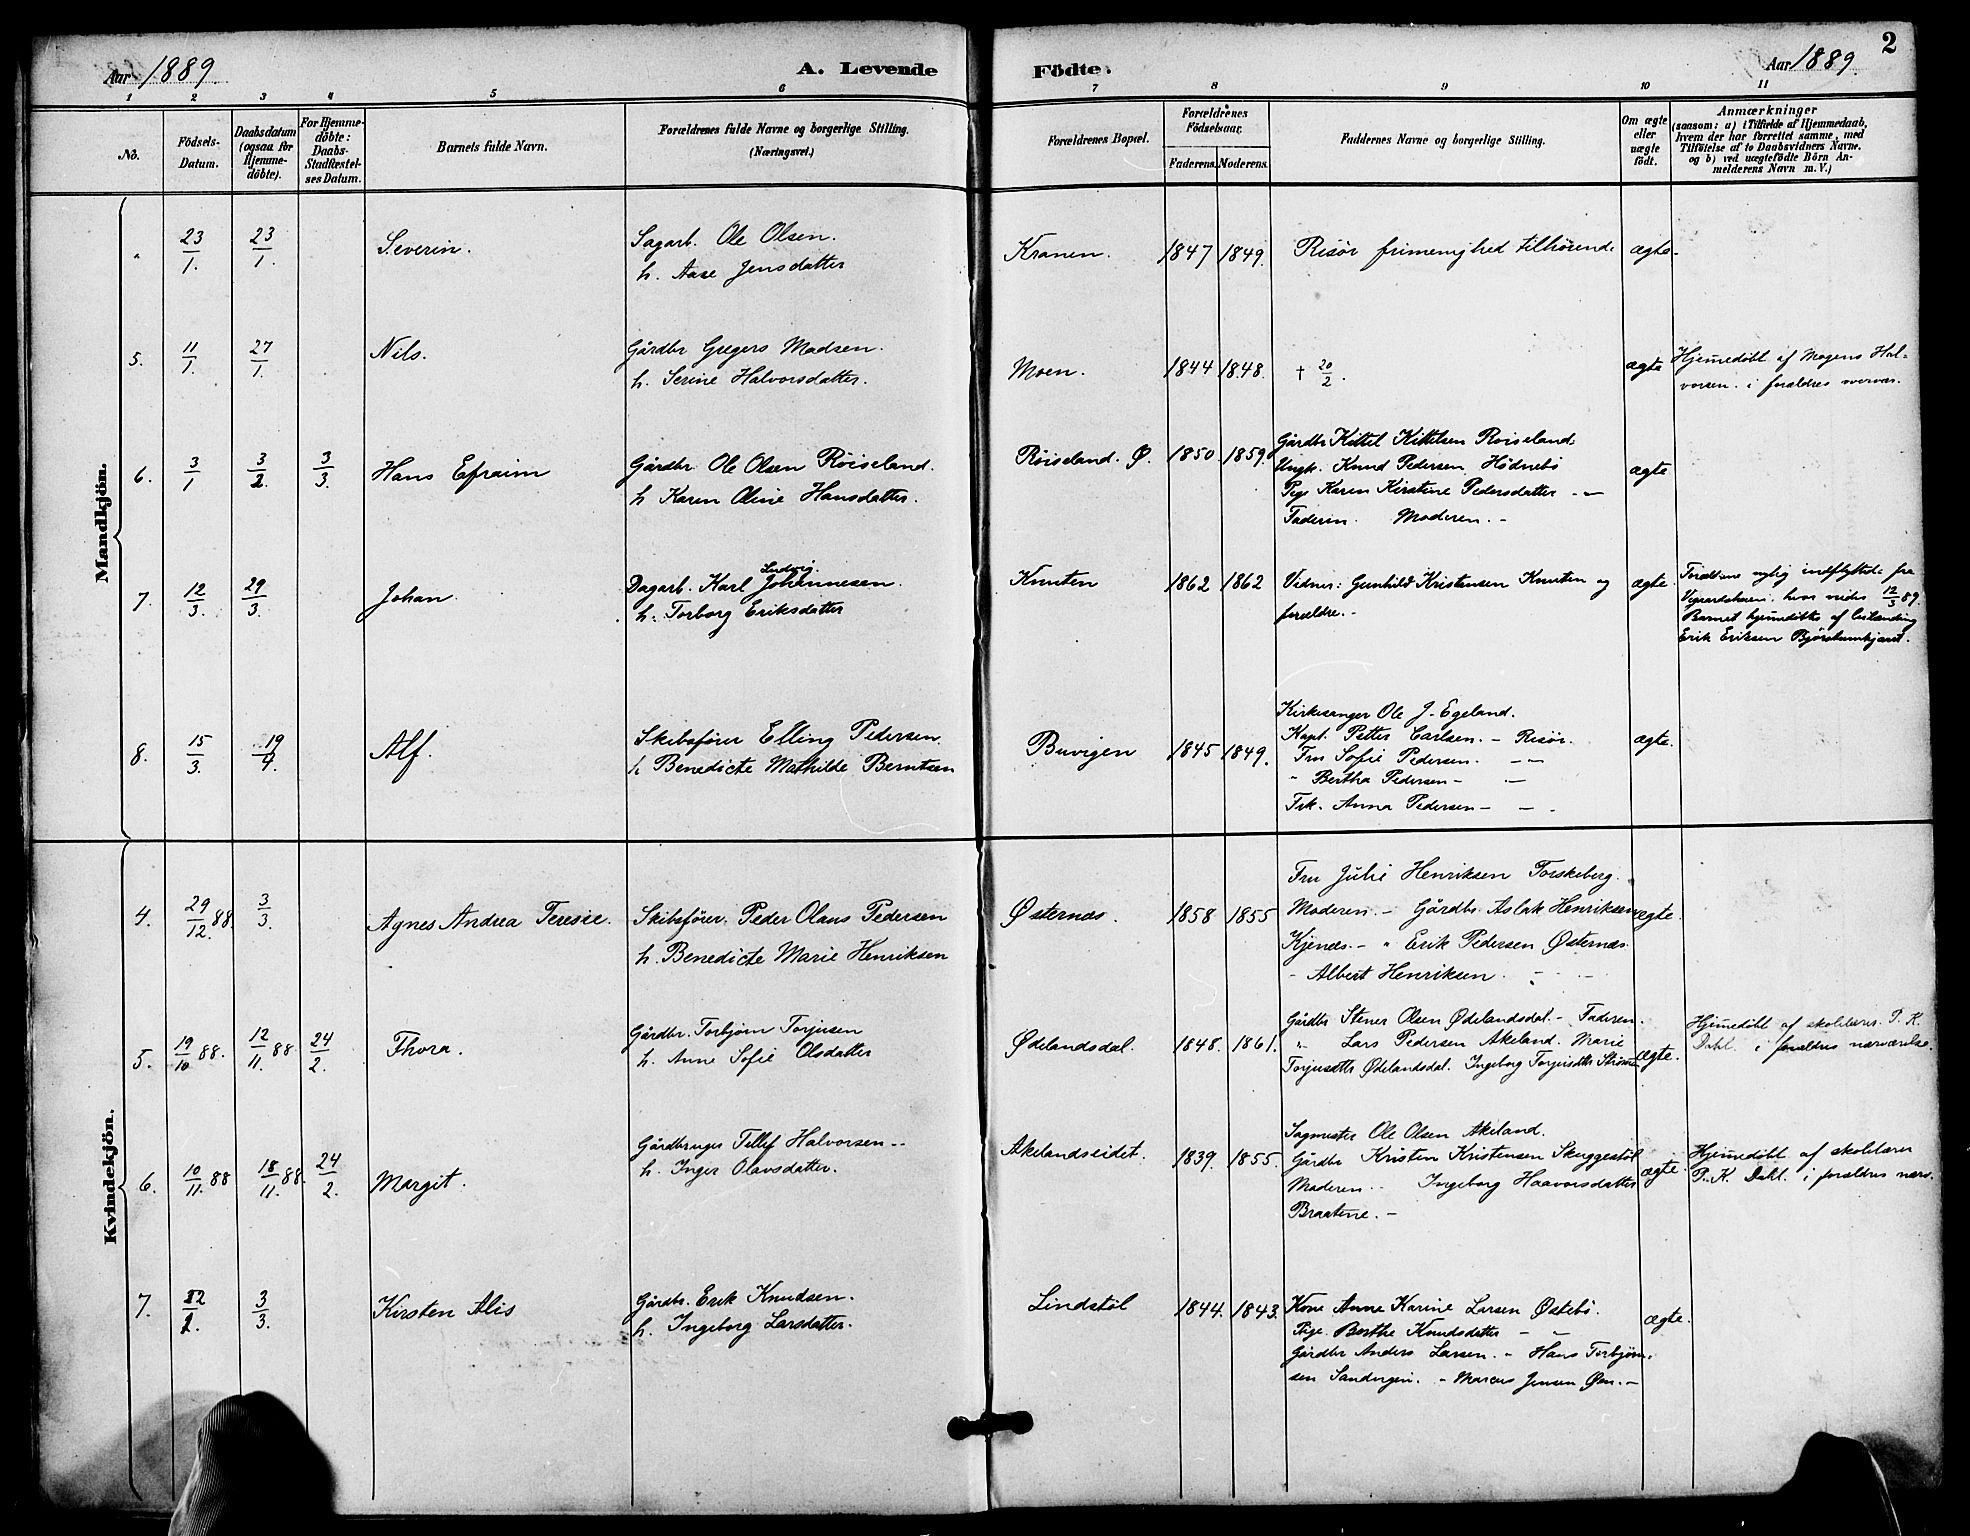 Aar 1889. A. Levende Födte. Aar 1889. 2
1 2 3 4 5 6 7 8 9 10 11
No.
Födsels-Datum.
Daabsdatum (ogsaa for Hjemmedöbte).
For Hjemmedöbte: Daabs-Stadfæstelses Datum.
Barnets fulde Navn.
Forældrenes fulde Navne og borgerlige Stilling.
(Næringsvei.)
Forældrenes Bopæl.
Forældrenes Födselsaar.
Faderens. Moderens.
Faddernes Navne og borgerlige Stilling.
Om ægte eller uægte födt.
Anmærkninger
(saasom: a) i Tilfælde af Hjemmedaab,
hvem der har forrettet samme, med
Tilföielse af to Daabsvidners Navne.
og b) ved uægtefödte Börn An-
melderens Navn m. V.)
Mandkjön.
" 23/1. 23/1. Severin. Sagarb. Ole Olsen. Kranen. 1847 1849. Risør frimenighed tilhørende ægte.
h. Aase Jensdatter
5. 11/1. 27/1. Nils. Gårdbr Gregers Madsen. Moen. 1844 1848. † 20/2. ægte Hjemmedöbt af Mogens Hal-
h. Serine Halvorsdatter. vorsen. i forældres
6. 3/1 3/2. 3/3. Hans Efraim Gårdbr. Ole Olsen Røiseland. Røiseland. Ø. 1850. 1859. Gårdbr Kittel Kittelsen Røiseland. ægte
h Karen Oline Hansdatter. Ungk. Knud Pedersen Hødnebø
Pige Karen Kirstine Pedersdatter - -
Faderen. Moderen. -
7. 12/3. 29/3. Johan. Dagarb. Karl Ludvig Johannesen. Knuten 1862 1862 Vidner: Gunhild Kristensen Knuten og ægte Forældrene nylig indflyttede fra
h. Torborg Eriksdatter forældre. - Vegaardsheien. hvor 12/3 89.
Barnet hjemmedöbtes af
Erik Eriksen
8. 15/3. 19/4. Alf. Skibsfører Elling Pedersen. Buvigen 1845 1849. Kirkesanger Ole J. Egeland. ægte.
h Benedicte Mathilde Berntsen Kapt. Petter Carlsen. - Risør.
Fru Sofie Pedersen. - -
" Bertha Pedersen - -
Frk. Anna Pedersen - -
Kvindekjön.
4. 29/12. 88. 3/3. Agnes Andrea Teresie. Skibsfører. Peder Olaus Pedersen Østernæs. 1858 1855 Fru Julie Henriksen Torskeberg. ægte.
h. Benedicte Marie Henriksen Moderen. - Gårdbr. Aslak Henriksen
Kjenæs. - " Erik Pedersen Østernæs.
- Albert Henriksen. - -
5. 19/10 88. 12/11. 88. 24/2. Thora. Gårdbr. Torbjørn Torjusen Ødelandsdal. 1848. 1861. Gårdbr Stener Olsen Ødelandsdal - Faderen. ægte. Hjemmedöbt af skolelærer. P. K.
h. Anne Sofie Olsdatter " Lars Pedersen Akeland. Marie Dahl. i forældres nærværelse.
Torjusdtr Ødelandsdal. Ingeborg Torjusdtr
6. 10/11. 88 18/11. 88. 24/2. Margit. Gårdbruger Tellef Halvorsen - Akelandseidet. 1839. 1855. Sagmester Ole Olsen Akeland. ægte Hjemmedöbt af skolelærer
h. Inger Olavsdatter. Gårdbr Kristen Kristensen Skuggestøl P. K. Dahl. i forældres nærv.
Moderen. Ingeborg Haavorsdatter
Braatene. -
7. 22/2. 3/3. Kirsten Alis Gårdbr. Erik Knudsen. Lindstøl 1844. 1843. Kone Anne Karine Larsen Østebø. ægte.
h. Ingeborg Larsdatter. Pige. Berthe Knudsdatter - -
Gårdbr Anders Larsen. - Hans Torbjørn-
sen Sandvigen. - Marcus Jensen Øen. -